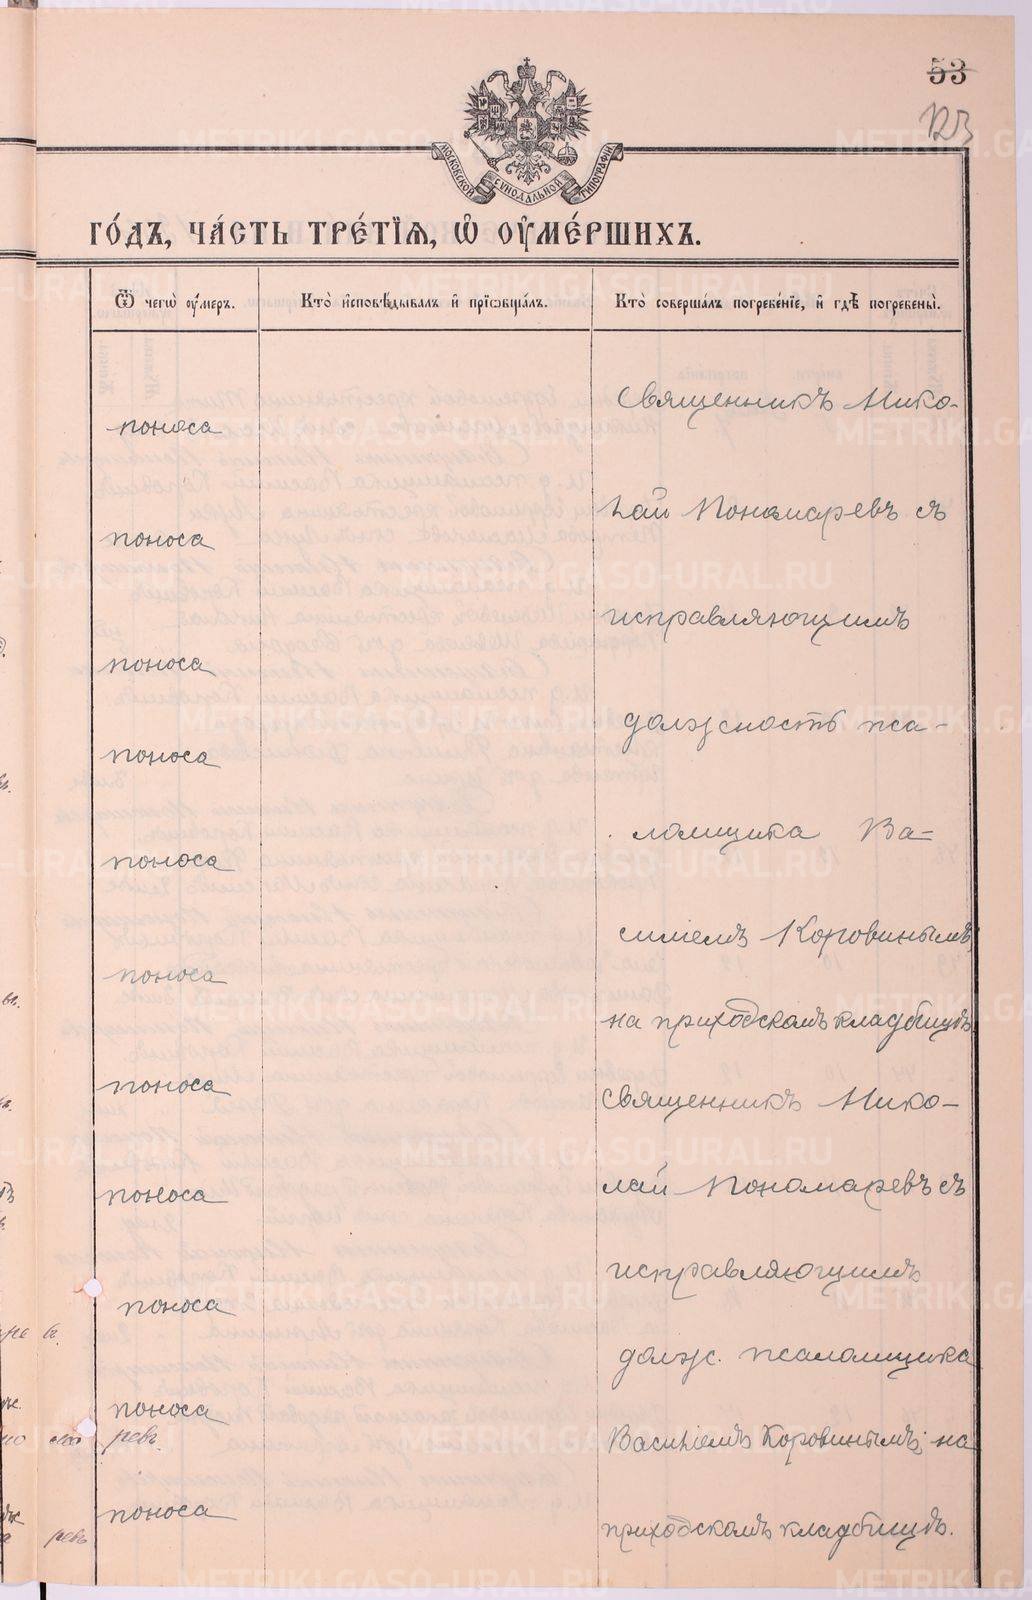 53
123
МОСКОВСКОЙ СѴНОДАЛЬНОЙ ТИПОГРАФІИ
ГО́ДЪ, ЧА́СТЬ ТРЕ́ТІѦ, Ѡ҆ ОУ҆МЕ́РШИХЪ.
Ѿ чегѡ̀ оу҆́меръ.
Кто̀ и҆сповѣ́дывалъ и҆ прїѡбща́лъ.
Кто̀ соверша́лъ погребе́нїе, и҆ гдѣ̀ погребены̀.
Священникъ Нико-
поноса
лай Пономаревъ съ
поноса
исправляющимъ
поноса
должность пса-
поноса
ломщика Ва-
поноса
силіемъ Коровинымъ
поноса
на приходскомъ кладбищѣ.
поноса
Священникъ Нико-
лай Пономаревъ съ
поноса
исправляющимъ
поноса
должс. псаломщика
поноса
ревъ.
Василіемъ Коровинымъ; на
поноса
приходскомъ кладбищѣ.
ревъ
METRIKI.GASO-URAL.RU